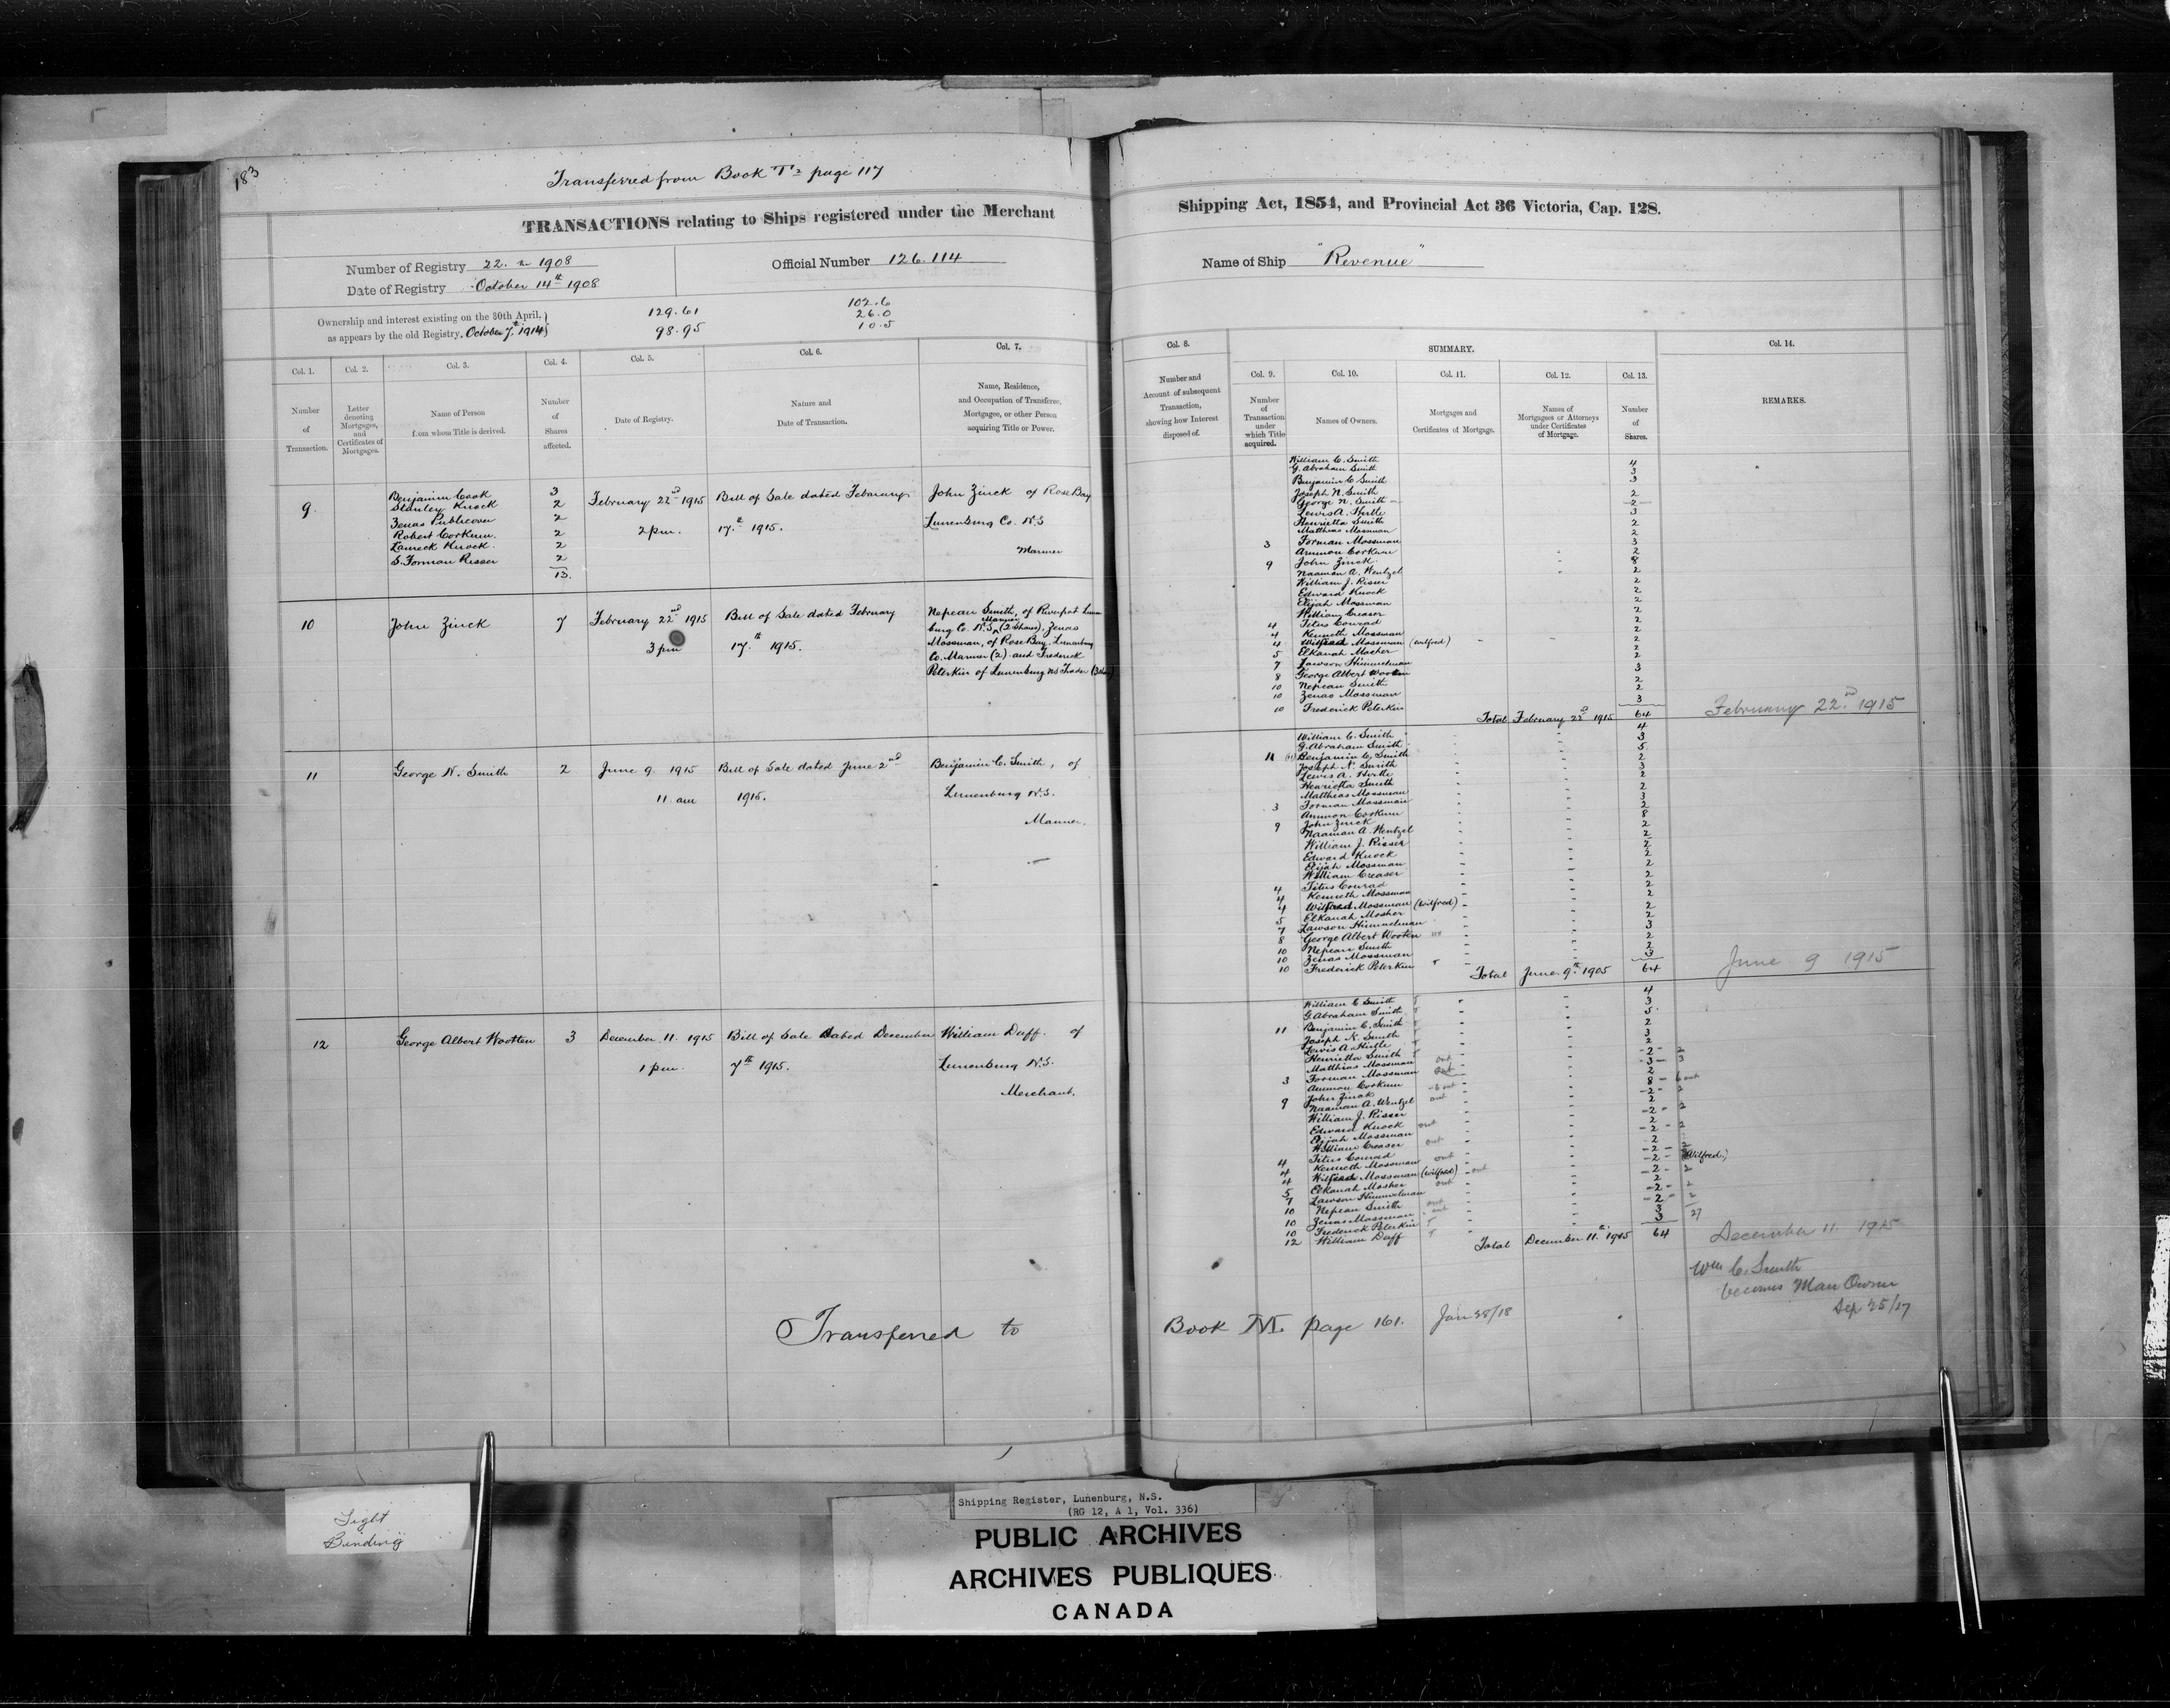 183
Transferred from Book T2 page 117
TRANSACTIONS relating to Ships registered under the Merchant
Shipping Act, 1854, and Provincial Act 36 Victoria, Cap. 128.
Number of Registry 22. in 1908
Date of Registry October 14th 1908
Official Number 126.114
Name of Ship "Revenue"
Ownership and interest existing on the 30th April,
as appears by the old Registry. October 7th 1914
129.61
98.95
102.6
26.0
10.5
Col. 1.
Number
of
Transaction.
Col. 2.
Letter
denoting
Mortgages,
and
Certificates of
Mortgages.
Col. 3.
Name of Person
from whom Title is derived.
Col. 4.
Number
of
Shares
affected.
Col. 5.
Date of Registry.
Col. 6.
Nature and
Date of Transaction.
Col. 7.
Name, Residence,
and Occupation of Transferee,
Mortgagee, or other Person
acquiring Title or Power.
Col. 8.
Number and
Account of subsequent
Transaction,
showing how Interest
disposed of.
SUMMARY.
Col. 9.
Number
of
Transaction
under
which Title
acquired.
Col. 10.
Names of Owners.
Col. 11.
Mortgages and
Certificates of Mortgage.
Col. 12.
Names of
Mortgagees or Attorneys
under Certificates
of Mortgage.
Col. 13.
Number
of
Shares.
Col. 14.
REMARKS.
9.
Benjamin Cook 3
Stanley Knock 2
Zenas Publicover 2
Robert Corkum. 2
Laureck Knock. 2
S. Forman Risser 2
13.
February 22nd 1915
2 pm.
Bill of Sale dated February
17th 1915.
John Zinck of Rose Bay
Lunenburg Co. N.S
Mariner
10 John Zinck 7
February 22nd 1915
3 pm
Bill of Sale dated February
17th 1915.
Nepean Smith, of Riverport Lunen
burg Co. N.S. Mariner (2 Shares), Zenas
Mossman, of Rose Bay Lunenburg
Co. Mariner (2) and Frederick
Peterkin of Lunenburg NS Trader (3 shares)
11 George N. Smith 2
June 9 1915
11 am
Bill of Sale dated June 2nd
1915.
Benjamin C. Smith, of
Lunenburg N.S.
Mariner.
12 George Albert Wootten 3
December 11. 1915
1 pm.
Bill of Sale dated December
7th 1915.
William Duff. of
Lunenburg N.S.
Merchant.
William C. Smith 4
G. Abraham Smith 3
Benjamin C Smith 3
Joseph N. Smith 2
George N. Smith 2
Lewis A. Hirtle 3
Henrietta Smith 2
Matthias Mossman 2
3 Forman Mossman 3
Ammon Corkum 2
9 John Zinck 8
Naaman A. Wentzel 2
William J. Risser 2
Edward Knock 2
Elijah Mossman 2
William Creaser 2
4 Titus Conrad 2
4 Kenneth Mossman 2
4 Wilfred Mossman (Wilfred) 2
5 Elkanah Mosher 2
7 Lawson Himmelman 2
8 George Albert Wooten 3
10 Nepean Smith 2
10 Zenas Mossman 2
10 Frederick Peterkin 3
Total February 22nd 1915 64
February 22nd 1915
William C. Smith 4
G. Abraham Smith 3
11 Benjamin C. Smith 5
Joseph N. Smith 2
Lewis A. Hirtle 3
Henrietta Smith 2
Matthias Mossman 2
3 Forman Mossman 3
Ammon Corkum 2
9 John Zinck 8
Naaman A. Wentzel 2
William J. Risser 2
Edward Knock 2
Elijah Mossman 2
William Creaser 2
4 Titus Conrad 2
4 Kenneth Mossman 2
4 Wilfred Mossman (Wilfred) 2
5 Elkanah Mosher 2
7 Lawson Himmelman 2
8 George Albert Wooten 3
10 Nepean Smith 2
10 Zenas Mossman 2
10 Frederick Peterkin 3
Total June 9th 1905 64
June 9 1915
William C Smith 4
G Abraham Smith 3
11 Benjamin C. Smith 5
Joseph N. Smith 2
Lewis A. Hirtle 3
Henrietta Smith 2
Matthias Mossman out 2
3 Forman Mossman out 3
Ammon Corkum 2
9 John Zinck 6 out 8 6 out
Naaman A. Wentzel out 2
William J. Risser 2
Edward Knock out 2
Elijah Mossman 2
William Creaser out 2
4 Titus Conrad 2
4 Kenneth Mossman out 2
4 Wilfred Mossman (Wilfred) out 2 (Wilfred)
5 Elkanah Mosher out 2
7 Lawson Himmelman 2
10 Nepean Smith out 2
10 Zenas Mossman out 2
10 Frederick Peterkin 3
12 William Duff 3
27
Total December 11th 1915 64
December 11. 1915
Wm C. Smith
becomes Man Owner
Sep 25/17
Transferred to Book M page 161. Jan 28/18
Tight
Binding
Shipping Register, Lunenburg, N.S.
(RG 12, A 1, Vol. 336)
PUBLIC ARCHIVES
ARCHIVES PUBLIQUES
CANADA